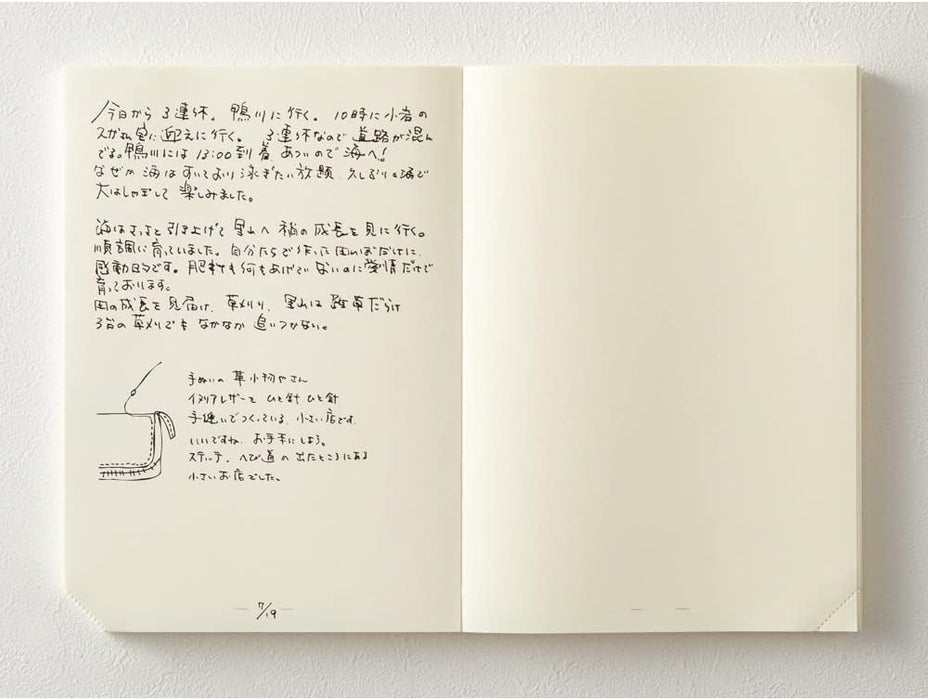 今日から3連休。鴨川に行く。10時に小岩の
スガさん宅に迎えに行く。3連休なので道路が混ん
でる。鴨川には13:00到着。あついので海へ!
なぜか海はすいており泳ぎたい放題。久しぶりの海で
大はしゃぎして楽しみました。
海はさっさと引き上げて里山へ 稲の成長を見に行く。
順調に育っていました。自分たちで作った田んぼだけに、
感動的です。肥料も何もあげていないのに愛情だけで
育っております。
田の成長を見届け、草刈り、里山は雑草だらけ
3台の草刈りでもなかなか追いつかない。
手ぬいの革小物やさん
イタリアレザーを ひと針ひと針
手縫いでつくっている、小さい店です。
いいですね。お手本にしよう。
ステッチ、へび道の出たところにある
小さいお店でした。
7/19